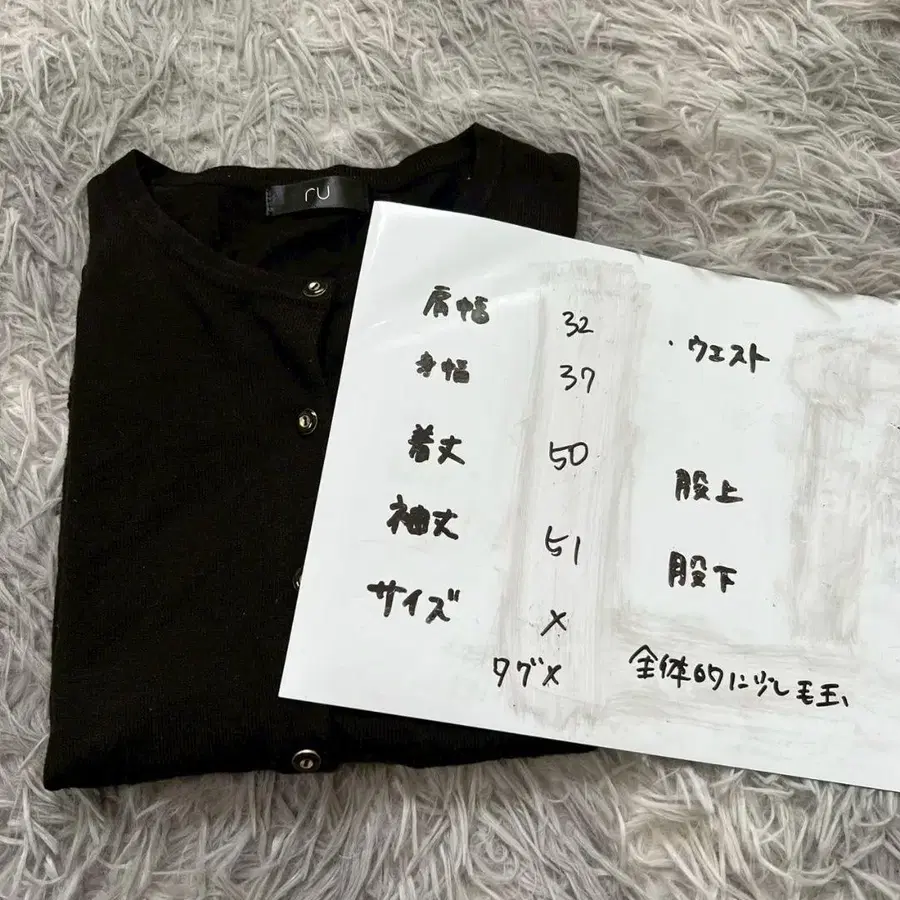 ru
肩幅 32
身幅 37
着丈 50
袖丈 51
サイズ ×
タグ×
・ウエスト
股上
股下
全体的に少し毛玉、